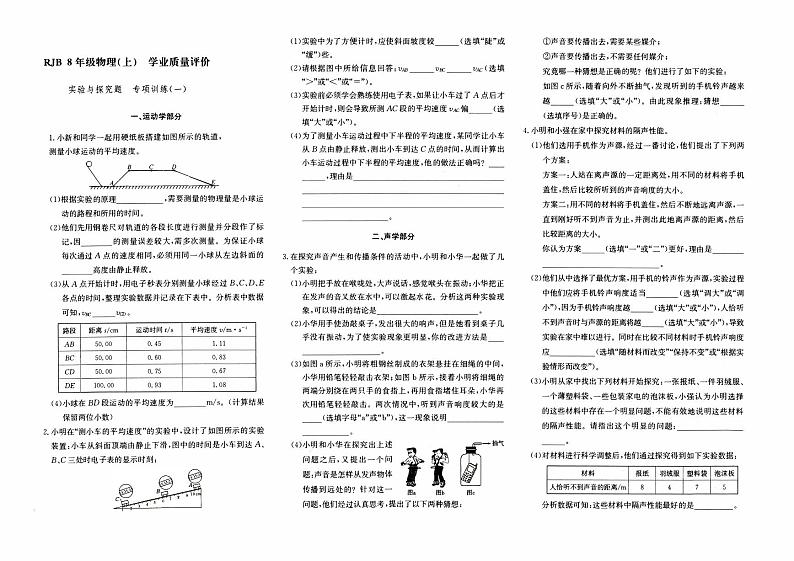 RJB 8年级物理(上) 学业质量评价
实验与探究题 专项训练(一)
一、运动学部分
1. 小新和同学一起用硬纸板搭建如图所示的轨道,
测量小球运动的平均速度。
A B C D E
(1)根据实验的原理________,需要测量的物理量是小球运
动的路程和所用的时间。
(2)他们先用钢卷尺对轨道的各段长度进行测量并分段作了标
记,因________的测量误差较大,需多次测量。为保证小球
每次通过A点的速度相同,必须用同一小球从左边斜面的
________高度由静止释放。
(3)从A点开始计时,用电子秒表分别测量小球经过B、C、D、E
各点的时间,整理实验数据并记录在下表中。分析表中数据
可知,vBC______vCD。
路段 距离s/cm 运动时间t/s 平均速度v/m·s⁻¹
AB 50.00 0.45 1.11
BC 50.00 0.60 0.83
CD 50.00 0.75 0.67
DE 100.00 0.93 1.08
(4)小球在BD段运动的平均速度为________m/s。(计算结果
保留两位小数)
2. 小明在“测小车的平均速度”的实验中,设计了如图所示的实验
装置:小车从斜面顶端由静止下滑,图中的时间是小车到达A、
B、C三处时电子表的显示时刻:
(1)实验中为了方便计时,应使斜面坡度较______(选填“陡”或
“缓”)些。
(2)请根据图中所给信息回答:vAB______vBC______vAC(选填
“>”或“<”或“=”)。
(3)实验前必须学会熟练使用电子表,如果让小车过了A点后才
开始计时,则会导致所测AC段的平均速度vAC偏______(选
填“大”或“小”)。
(4)为了测量小车运动过程中下半程的平均速度,某同学让小车
从B点由静止释放,测出小车到达C点的时间,从而计算出
小车运动过程中下半程的平均速度,他的做法正确吗?____
________,理由是________________
________________
________________。
二、声学部分
3. 在探究声音产生和传播条件的活动中,小明和小华一起做了几
个实验:
(1)小明把手放在喉咙处,大声说话,感觉喉头在振动;小华把正
在发声的音叉放在水中,可以激起水花。分析这两种实验现
象,可以得出的结论是________________。
(2)小华用手使劲敲桌子,发出很大的响声,但是她看到桌子几
乎没有振动,为了使实验现象更明显,你的改进方法是____
________________。
(3)如图a所示,小明将粗钢丝制成的衣架悬挂在细绳的中间,
小华用铅笔轻轻敲击衣架;如图b所示,接着小明将细绳的
两端分别绕在两只手的食指上,再用食指堵住耳朵,小华再
次用铅笔轻轻敲击。两次情况中,听到声音响度较大的是
______(选填字母“a”或“b”),这一现象说明__________
________________。
(4)小明和小华在探究出上述
问题之后,又提出一个问
题:声音是怎样从发声物体
传播到远处的?针对这一
问题,他们经过认真思考,提出了以下两种猜想:
抽气
图a 图b 图c
①声音要传播出去,需要某些媒介;
②声音要传播出去,不需要任何媒介;
究竟哪一种猜想是正确的呢?他们进行了如下的实验:
如图c所示,随着向外不断抽气,发现听到的手机铃声越来
越______(选填“大”或“小”)。由此现象推理:猜想______
(选填序号)是正确的。
4. 小明和小强在家中探究材料的隔声性能。
(1)他们选用手机作为声源,经过一番讨论,他们提出了下列两
个方案:
方案一:人站在离声源的一定距离处,用不同的材料将手机
盖住,然后比较所听到的声音响度的大小。
方案二:用不同的材料将手机盖住,然后不断地远离声源,一
直到刚好听不到声音为止,并测出此地离声源的距离,然后
比较距离的大小。
你认为方案______(选填“一”或“二”)更好,理由是________
________________。
(2)他们从中选择了最优方案,用手机的铃声作为声源,实验过程
中他们应将手机铃声响度适当________(选填“调大”或“调
小”),因为手机铃声响度越______(选填“大”或“小”),人恰听
不到声音时与声源的距离将越______(选填“大”或“小”),导致
实验在家中难以进行。同时在比较不同材料时手机铃声响度
应________(选填“随材料而改变”“保持不变”或“根据实
验情形而改变”)。
(3)小明从家中找出下列材料开始探究:一张报纸、一件羽绒服、
一个薄塑料袋、一些包装家电的泡沫板,小强认为小明选择
的这些材料中存在一个明显问题,不能有效地说明这些材料
的隔声性能。请指出这个明显的问题:________________
________。
(4)对材料进行科学调整后,他们通过探究得到如下实验数据:
材料 报纸 羽绒服 塑料袋 泡沫板
人恰听不到声音的距离/m 8 4 7 5
分析数据可知:这些材料中隔声性能最好的是________。